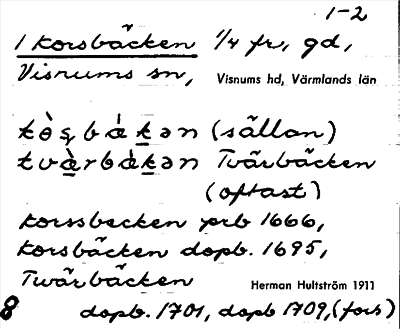 1-2
1 Korsbäcken 1/4 fr, gd,
Visnums sn, Visnums hd, Värmlands län
(sällan)
Tvärbäcken
(oftast)
Korssbecken prb 1666,
Korsbäcken dopb. 1695,
Twärbäcken Herman Hultström 1911
8 dopb. 1701, dopb 1709, (fors)